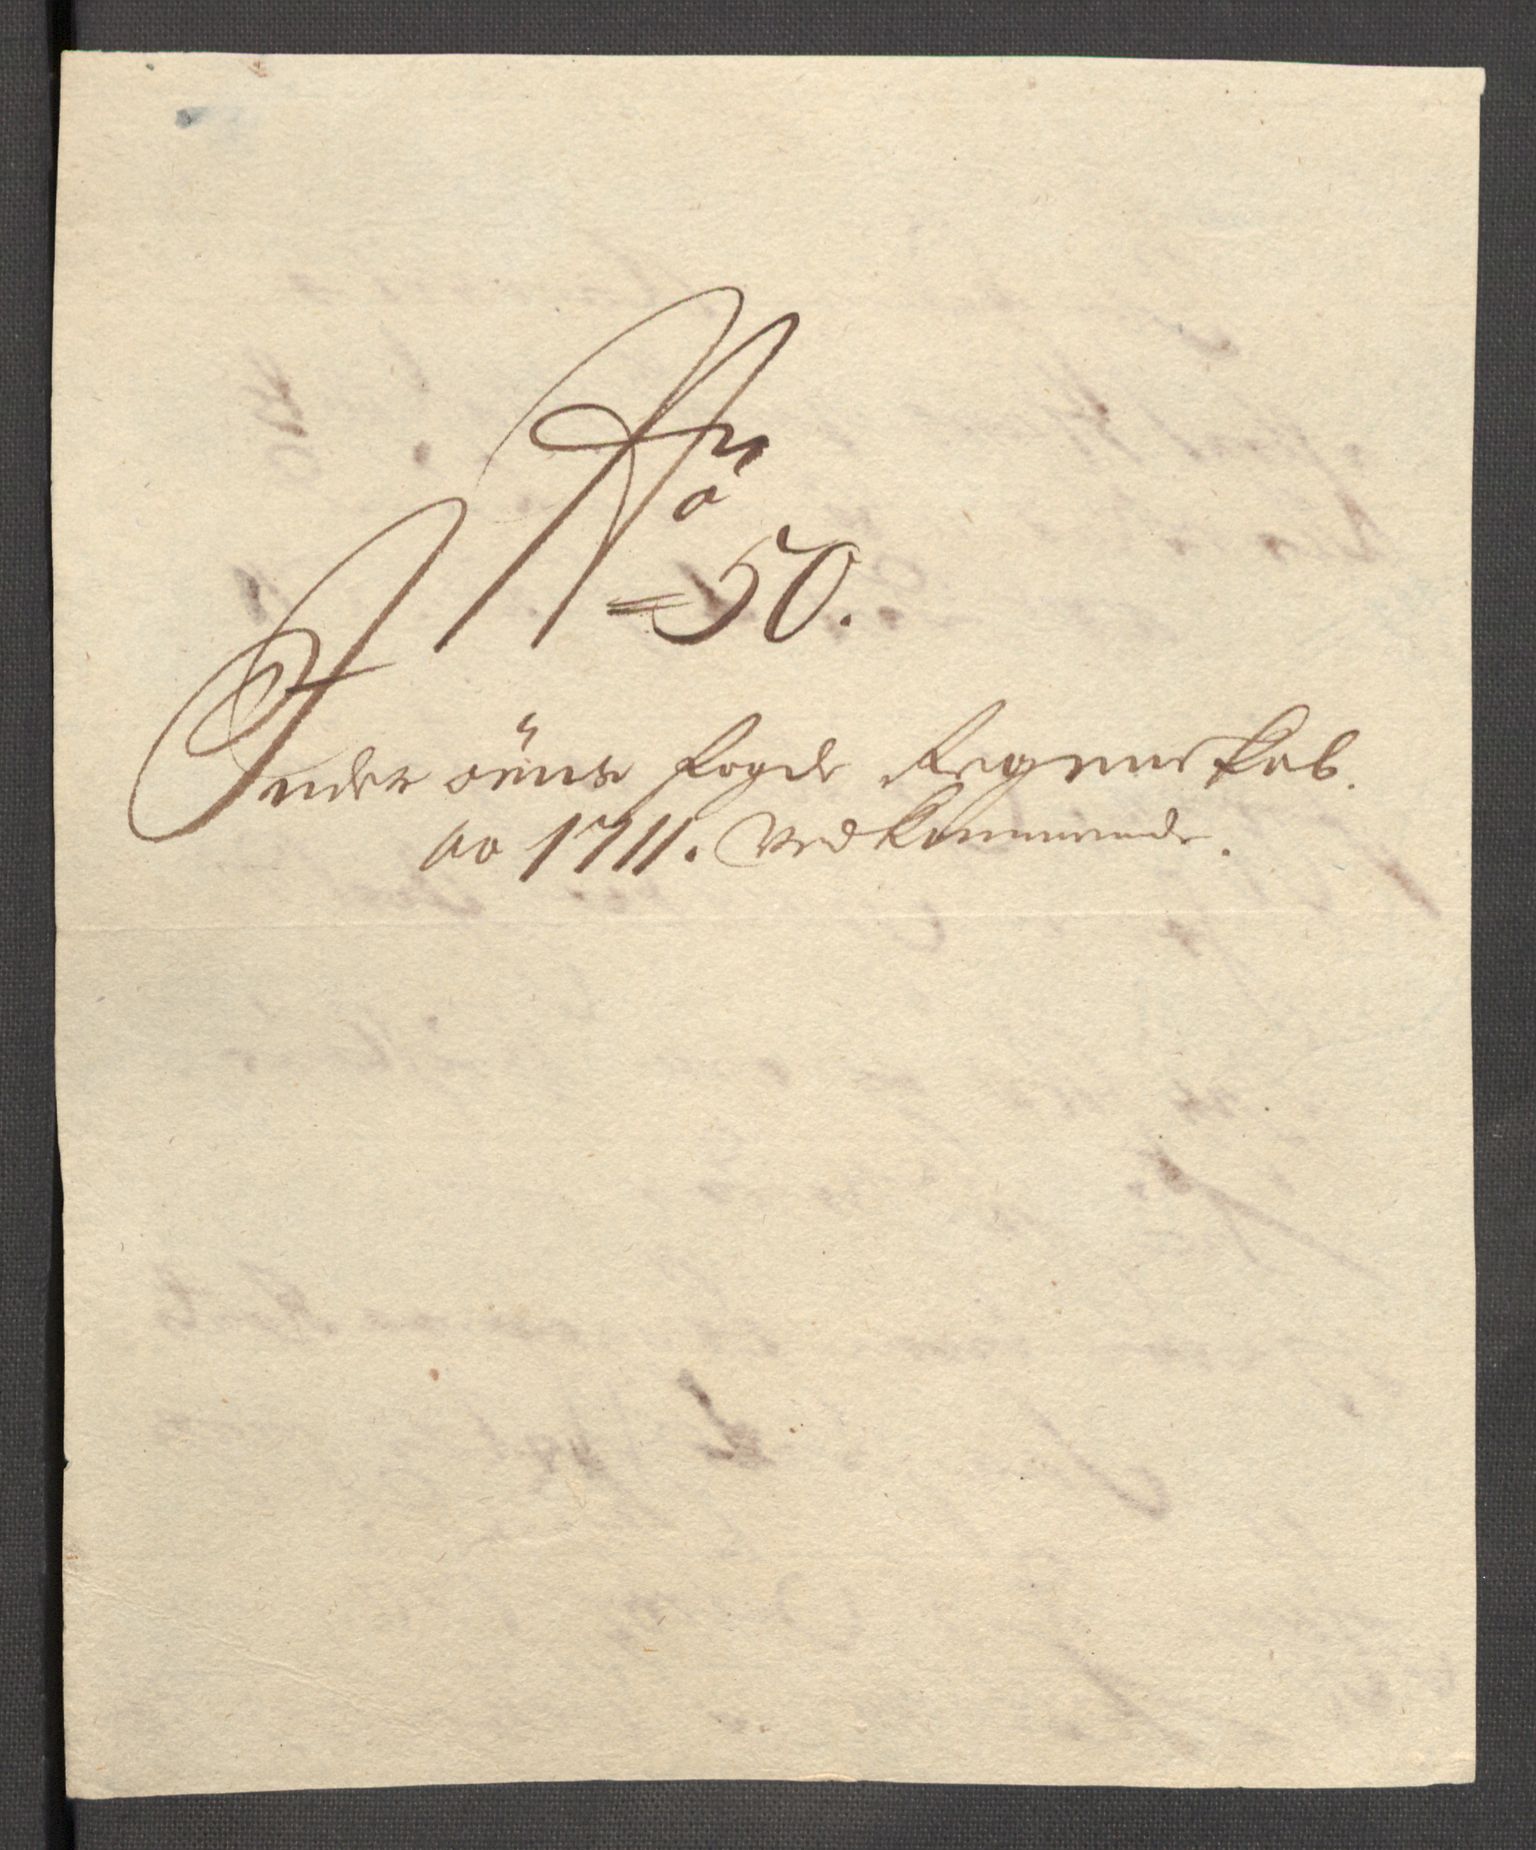 No
50.
Inderöens fogde Regnenskab.
ao 1711. Vedkommende.